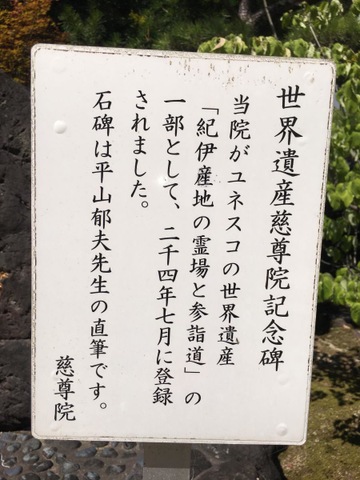 世界遺産慈尊院記念碑
当院がユネスコの世界遺産
「紀伊産地の霊場と参詣道」の
一部として、二千四年七月に登録
されました。
石碑は平山郁夫先生の直筆です。
慈尊院